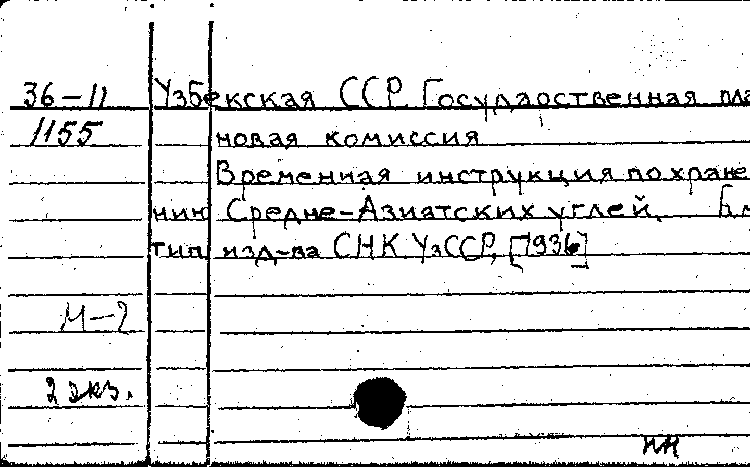 36-11 Узбекская ССР Государственная пла
1155 новая комиссия
Временная инструкция по хране
нию Средне-Азиатских углей.
тип. изд-ва СНК УзССР, [1936]
М-2
2 экз.